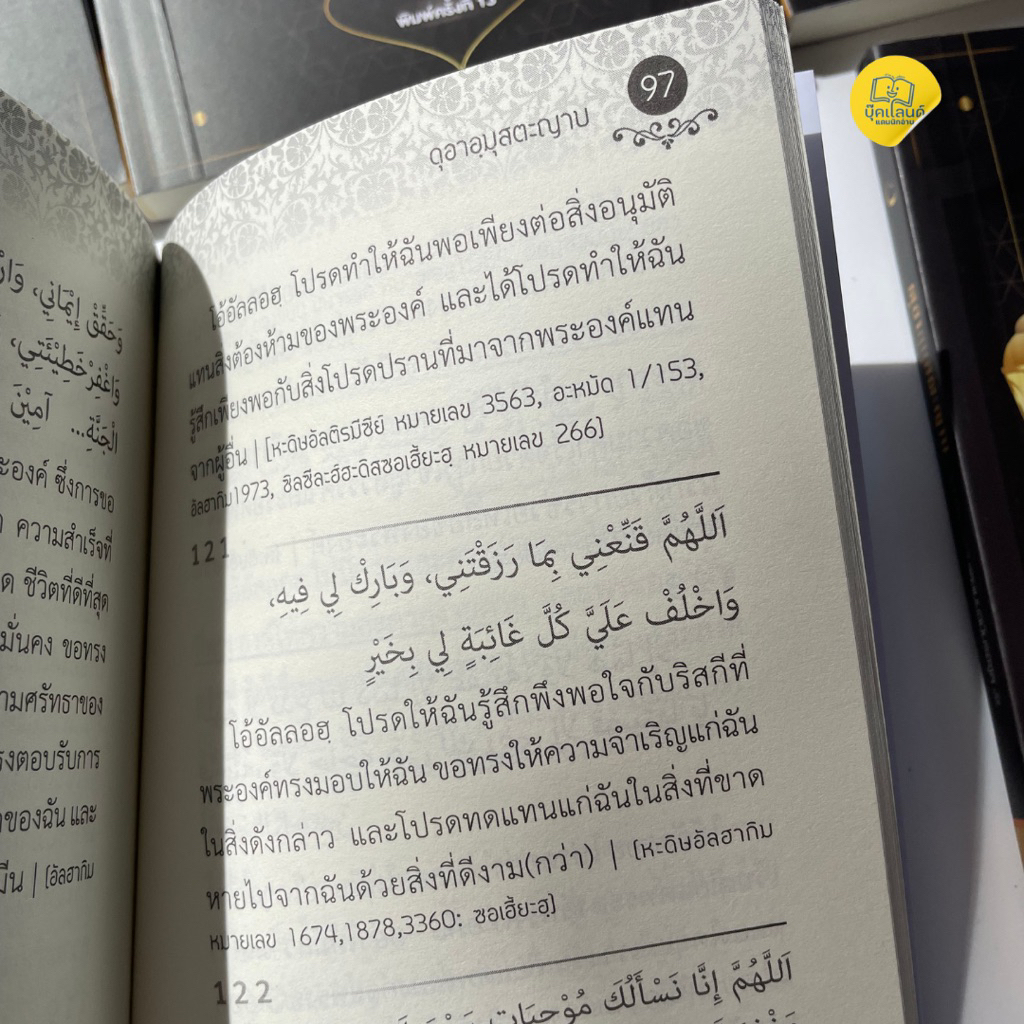 พิมพ์ครั้งที่ 13
บุ๊คแลนด์
แดนนักอ่าน
97
ดุอาอฺมุสตะญาบ
โอ้อัลลอฮฺ โปรดทำให้ฉันพอเพียงต่อสิ่งอนุมัติ
แทนสิ่งต้องห้ามของพระองค์ และได้โปรดทำให้ฉัน
รู้สึกเพียงพอกับสิ่งโปรดปรานที่มาจากพระองค์แทน
จากผู้อื่น | [หะดิษอัลติรมีซีย์ หมายเลข 3563, อะหมัด 1/153,
อัลฮากิม1973, ซิลซีละฮ์ฮะดิสซอเฮี้ยะฮฺ หมายเลข 266]
121
اَللَّهُمَّ قَنِّعْنِي بِمَا رَزَقْتَنِي، وَبَارِكْ لِي فِيهِ،
وَاخْلُفْ عَلَيَّ كُلَّ غَائِبَةٍ لِي بِخَيْرٍ
โอ้อัลลอฮฺ โปรดให้ฉันรู้สึกพึงพอใจกับริสกีที่
พระองค์ทรงมอบให้ฉัน ขอทรงให้ความจำเริญแก่ฉัน
ในสิ่งดังกล่าว และโปรดทดแทนแก่ฉันในสิ่งที่ขาด
หายไปจากฉันด้วยสิ่งที่ดีงาม(กว่า) | [หะดิษอัลฮากิม
หมายเลข 1674,1878,3360: ซอเฮี้ยะฮฺ]
122
اَللَّهُمَّ إِنَّا نَسْأَلُكَ مُوْجِبَاتِ
وَحَقِّقْ إِيْمَانِي،
وَاغْفِرْ خَطِيْئَتِي،
الْجَنَّةِ... آمِيْنَ
ะองค์ ซึ่งการขอ
ความสำเร็จที่
ชีวิตที่ดีที่สุด
มั่นคง ขอทรง
ามศรัทธาของ
รงตอบรับการ
าของฉัน และ
มีน | [อัลฮากิม